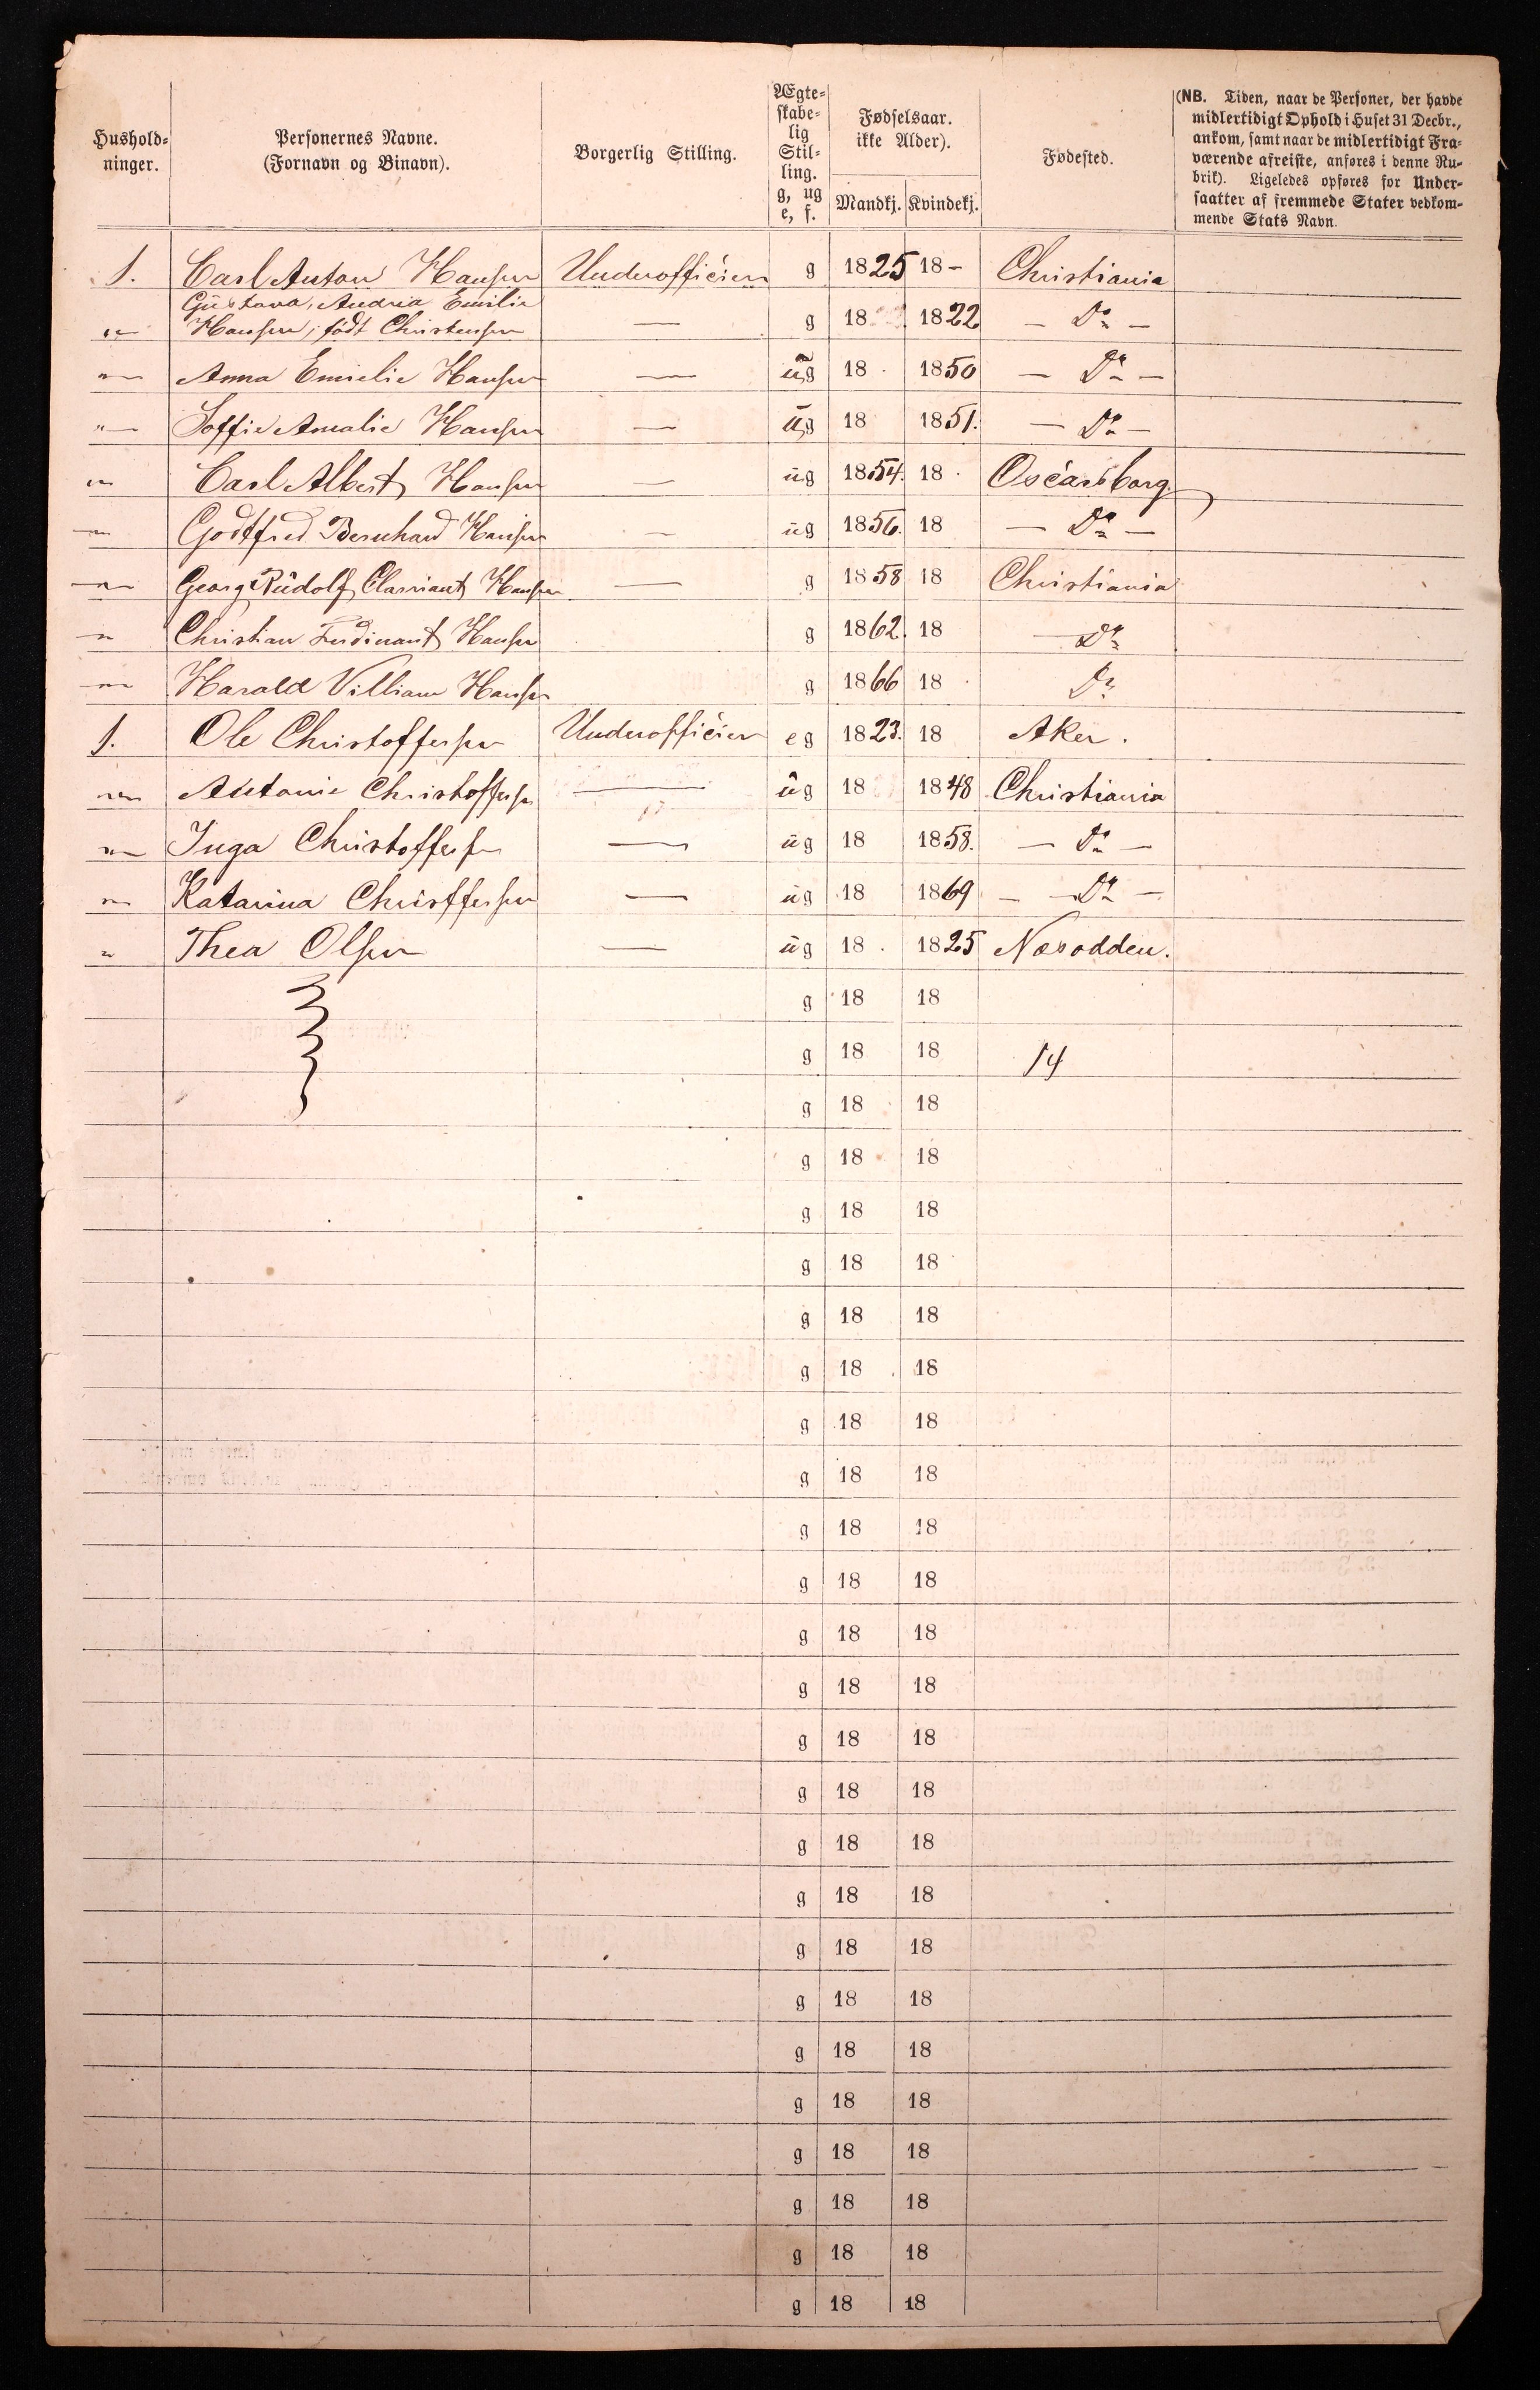 Hushold-
ninger.
Personernes Navne.
(Fornavn og Binavn).
Borgerlig Stilling.
Ægte-
skabe-
lig
Stil-
ling.
g, ug
e, f.
Fødselsaar.
ikke Alder).
Mandkj. Kvindekj.
Fødested.
(NB. Tiden, naar de Personer, der havde
midlertidigt Ophold i Huset 31 Decbr.,
ankom, samt naar de midlertidigt Fra-
værende afreiste, anføres i denne Ru-
brik). Ligeledes opføres for Under-
saatter af fremmede Stater vedkom-
mende Stats Navn.
1. Carl Anton Hansen Underofficier g 1825 18 - Christiania
Gustava, Andrea Emilie
" Hansen, født Christensen — g 18 1822 — Do —
" Anna Emielie Hansen — ug 18 1850 — Do —
" Soffie Amalie Hansen — ug 18 1851. — Do —
" Carl Albert Hansen — ug 1854. 18 Oscarsborg
" Godtfred Bernhard Hansen — ug 1856. 18 — Do —
" Georg Rudolf Hansen — g 1858 18 Christiania
" Christian Ferdinant Hansen g 1862. 18 Do
" Harald Villiam Hansen g 1866 18 Do
1. Ole Christoffersen Underofficier eg 1823. 18 Aker.
" Antonie Christoffersen — ug 18 1848 Christiania
" Inga Christoffersen — ug 18 1858. — Do —
" Katarina Christfersen — ug 18 1869 — Do —
" Thea Olsen — ug 18 1825 Nesodden.
g 18 18
g 18 18 14
g 18 18
g 18 18
g 18 18
g 18 18
g 18 18
g 18 18
g 18 18
g 18 18
g 18 18
g 18 18
g 18 18
g 18 18
g 18 18
g 18 18
g 18 18
g 18 18
g 18 18
g 18 18
g 18 18
g 18 18
g 18 18
g 18 18
g 18 18
g 18 18